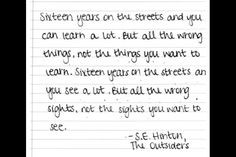 Sixteen years on the streets and you
can learn a lot. But all the wrong
things, not the things you want to
learn. Sixteen years on the streets an
you see a lot. But all the wrong
sights, not the sights you want to
see.
-S.E. Hinton,
The Outsiders